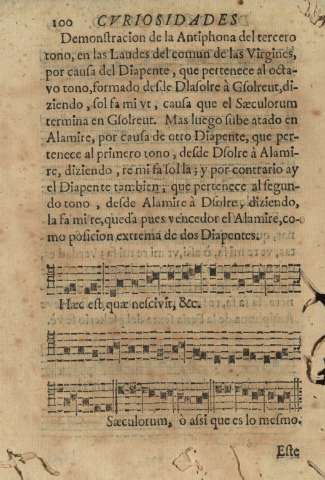 100 CVRIOSIDADES
Demonstracion de la Antiphona del tercero
tono, en las Laudes del comun de las Virgines,
por causa del Diapente, que pertenece al octa-
vo tono, formado desde Dlasolre à Gsolreut, di-
ziendo, sol fa mi vt, causa que el Sæculorum
termina en Gsolreut. Mas luego sube atado en
Alamire, por causa de otro Diapente, que per-
tenece al primero tono, desde Dsolre à Alami-
re, diziendo, re mi fa sol la; y por contrario ay
el Diapente tambien; que pertenece al segun-
do tono, desde Alamire à Dsolre, diziendo,
la fa mi re, queda pues vencedor el Alamire, co-
mo posicion extrema de dos Diapentes.
Hæc est, quæ nescivit, &c.
Sæculorum, ò assi que es lo mesmo.
Este